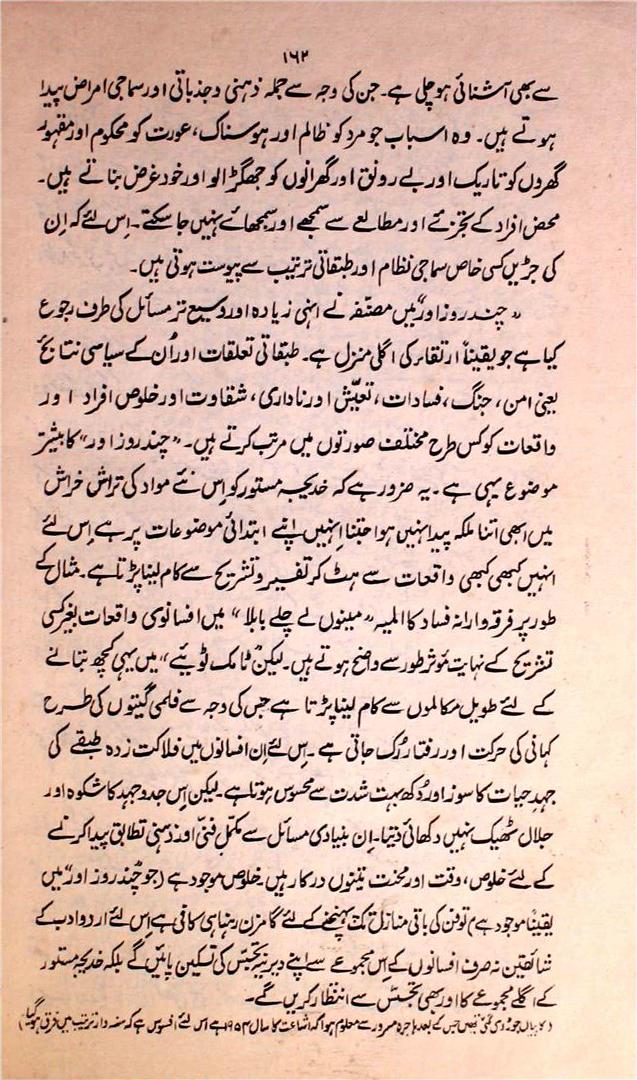 ۱۶۲
سے بھی آشنائی ہو چلی ہے۔ جن کی وجہ سے جملہ ذہنی و جذباتی اور سماجی امراض پیدا
ہوتے ہیں۔ وہ اسباب جو مرد کو ظالم اور ہوسناک، عورت کو محکوم اور مقہور
گھروں کو تاریک اور بے رونق اور گھرانوں کو جھگڑالو اور خود غرض بناتے ہیں۔
محض افراد کے تجزئے اور مطالعے سے سمجھے اور سمجھائے نہیں جا سکتے۔ اِس لئے کہ اِن
کی جڑیں کسی خاص سماجی نظام اور طبقاتی ترتیب سے پیوست ہوتی ہیں۔
"چند روز اور" میں مصنّفہ نے انہی زیادہ اور وسیع تر مسائل کی طرف رجوع
کیا ہے جو یقیناً ارتقاء کی اگلی منزل ہے۔ طبقاتی تعلقات اور اُن کے سیاسی نتائج
یعنی امن، جنگ، فسادات، تعیّش اور ناداری، شقاوت اور خلوص افراد اور
واقعات کو کس طرح مختلف صورتوں میں مرتب کرتے ہیں۔ "چند روز اور" کا بیشتر
موضوع یہی ہے۔ یہ ضرور ہے کہ خدیجہ مستور کو اِس نئے مواد کی تراش خراش
میں ابھی اتنا ملکہ پیدا نہیں ہوا جتنا اِنہیں اپنے ابتدائی موضوعات پر ہے اِس لئے
انہیں کبھی کبھی واقعات سے ہٹ کر تفسیر و تشریح سے کام لینا پڑتا ہے۔ مثال کے
طور پر فرقہ وارانہ فساد کا المیہ "مینوں لے چلے بابلا" میں افسانوی واقعات بغیر کسی
تشریح کے نہایت مؤثر طور سے واضح ہوتے ہیں۔ لیکن "ٹامک ٹوئیے" میں یہی کچھ بتانے
کے لئے طویل مکالموں سے کام لینا پڑتا ہے جس کی وجہ سے فلمی گیتوں کی طرح
کہانی کی حرکت اور رفتار رُک جاتی ہے۔ اِس لئے اِن افسانوں میں فلاکت زدہ طبقے کی
جہدِ حیات کا سوز اور دُکھ بہت شدت سے محسوس ہوتا ہے۔ لیکن اِس جدوجہد کا شکوہ اور
جلال ٹھیک نہیں دکھائی دیتا۔ اِن بنیادی مسائل سے مکمّل فنّی اور ذہنی تطابق پیدا کرنے
کے لئے خلوص، وقت اور محنت تینوں درکار ہیں۔ خلوص موجود ہے (جو "چند روز اور" میں
یقیناً موجود ہے) تو فن کی باقی منازل تک پہنچنے کے لئے گامزن رہنا ہی کافی ہے اِس لئے اردو ادب کے
شائقین نہ صرف افسانوں کے اِس مجموعے سے اپنے دیرینہ تجسّس کی تسکین پائیں گے بلکہ خدیجہ مستور
کے اگلے مجموعے کا اور بھی تجسّس سے انتظار کریں گے۔
(کاپیاں جوڑ دی گئی تھیں جس کے بعد ہاجرہ مسرور سے معلوم ہوا کہ اشاعت کا سال ۱۹۵۴ء ہے اس لئے افسوس ہے کہ سنہ وار ترتیب میں فرق ہو گیا)